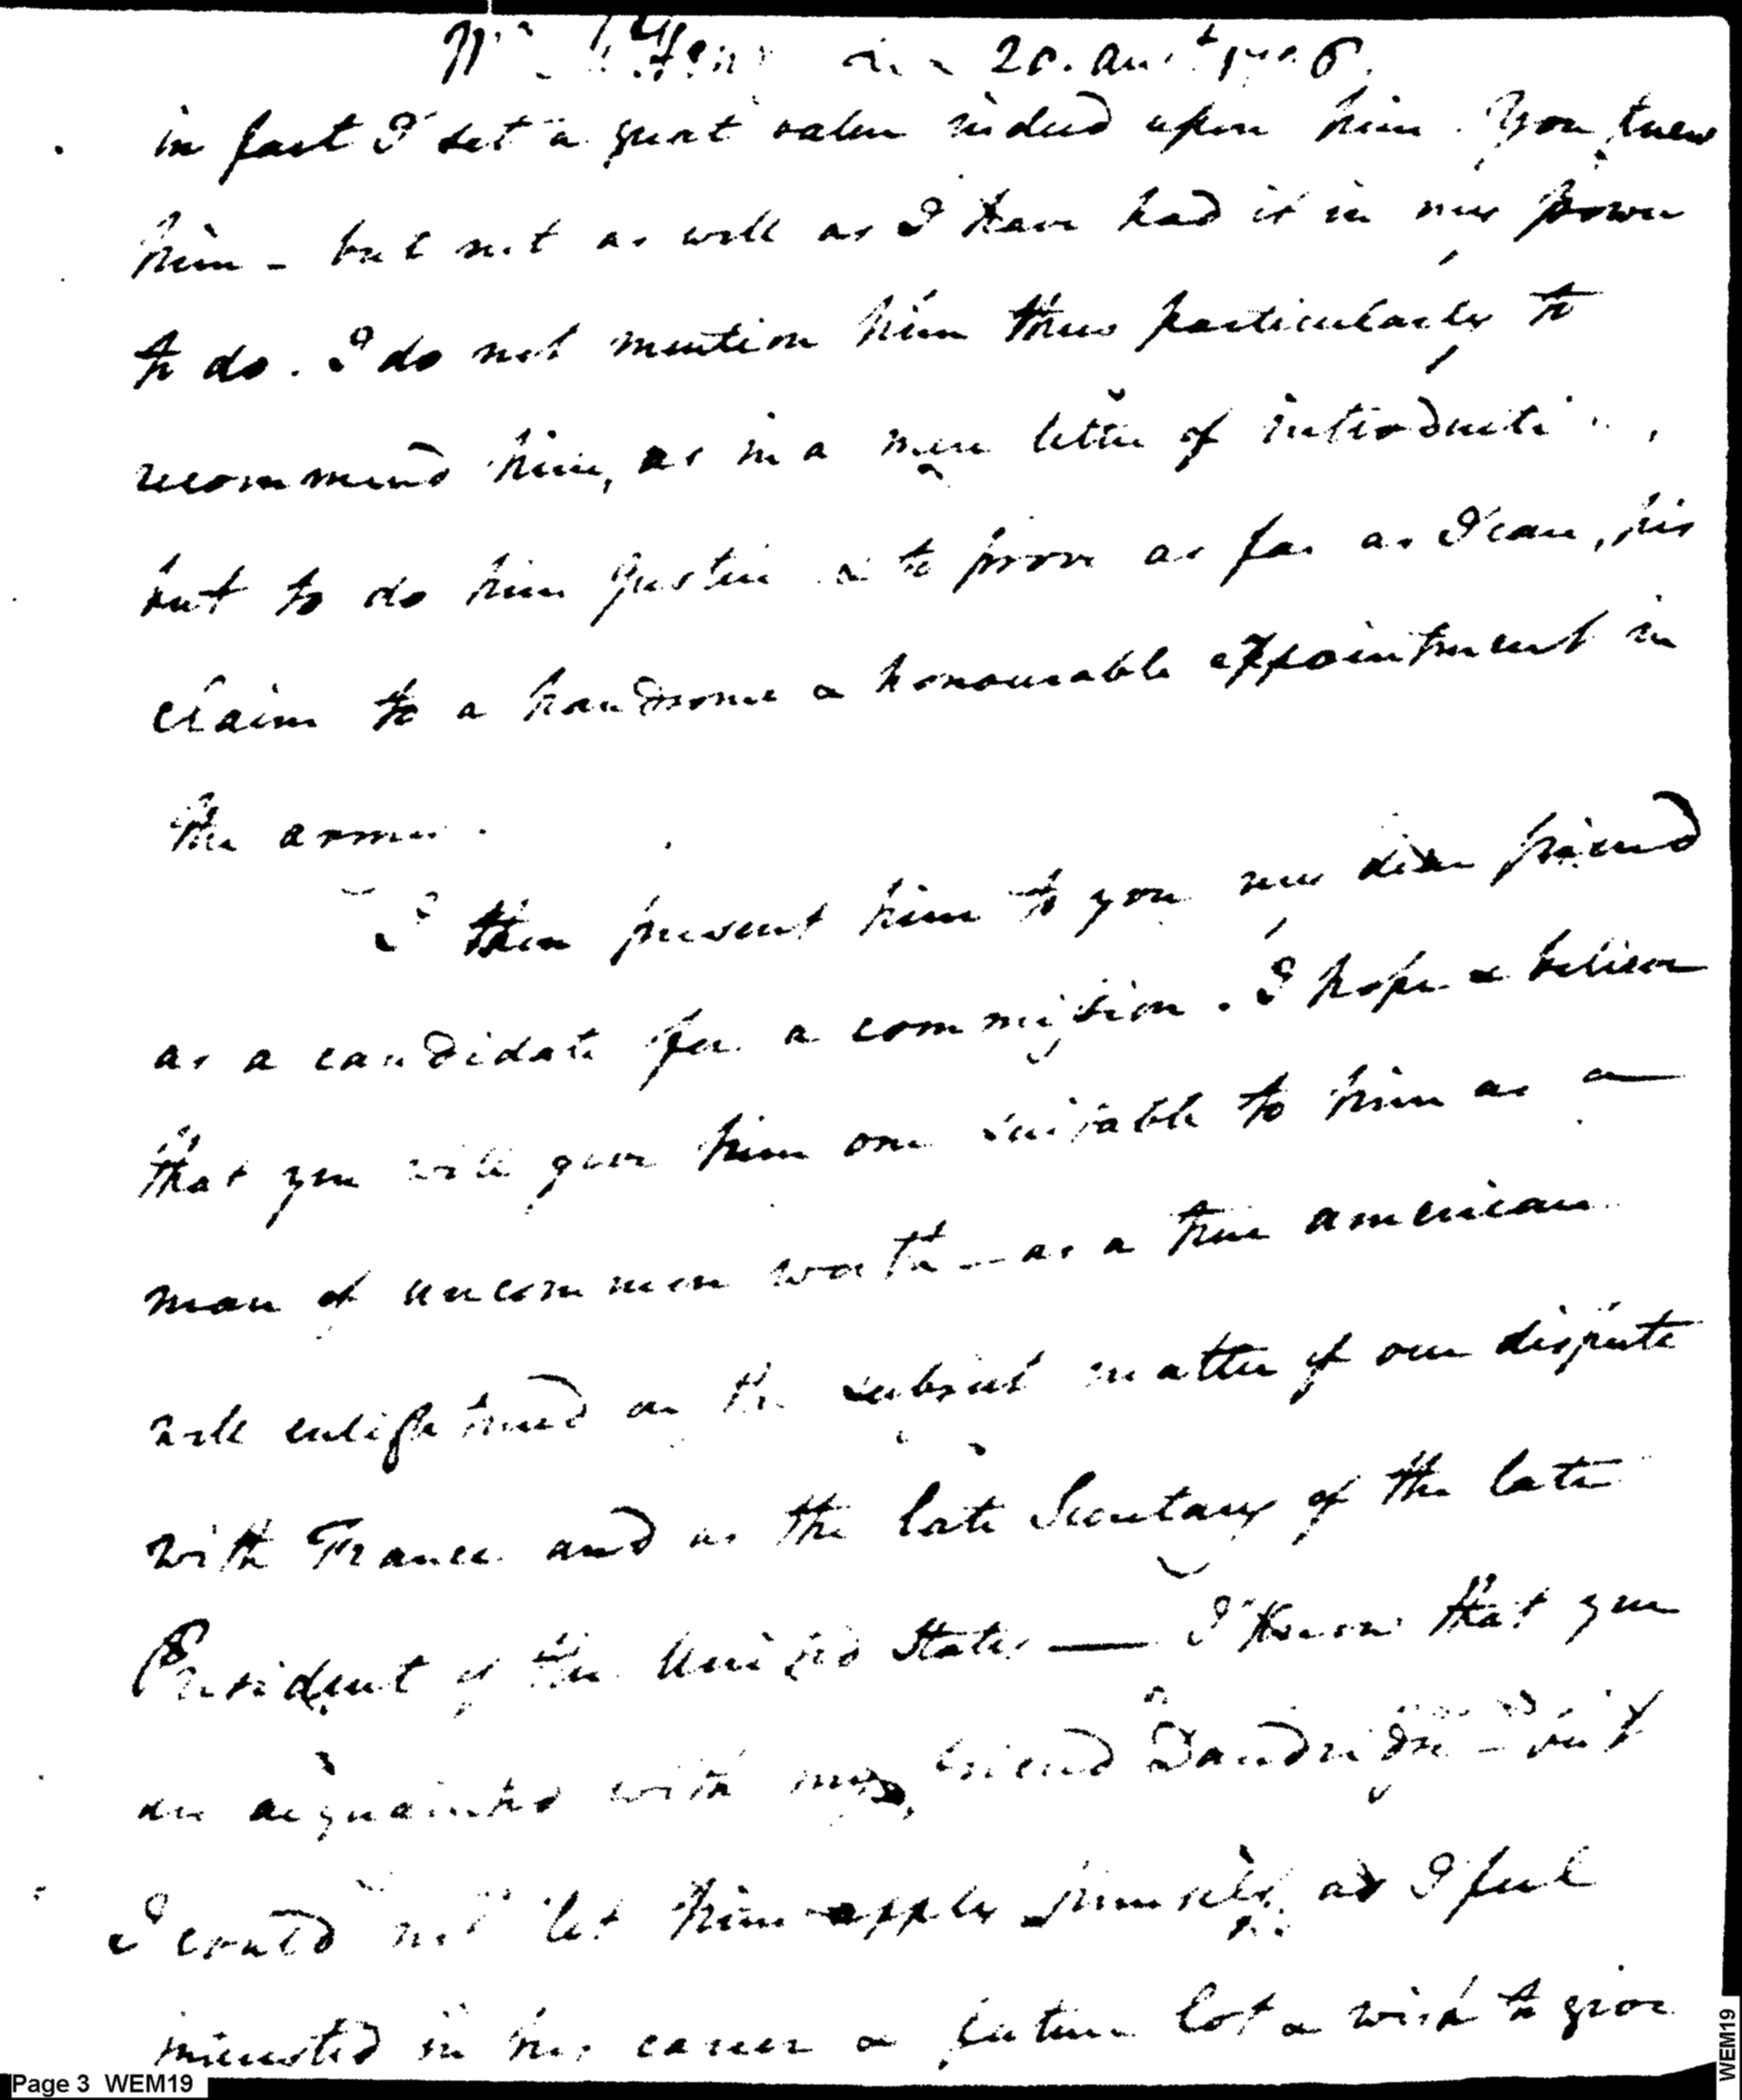 20. Aug
in fact I set a great value indeed upon him. You knew
him - but not as well as I have had it in my power
to do. I do not mention him thus particularly to
recommend him, as in a mere letter of
but to do him Justice & to prove as far as I can, his
claim to a handsome & honourable appointment in
the
I then present him to you my dear friend
as a candidate for a commission. I hope & believe
that you will give him one suitable to him as a
man of uncommon worth - as a true american
well enlightened on the subject matter of our dispute
with France and as the late Secretary of the late
President of the United States — I know that you
are acquainted with my friend Dandridge - but
I could not let him apply himself as I feel
interested in his career & future lot & wish to give
Page 3 WEM19
WEM19